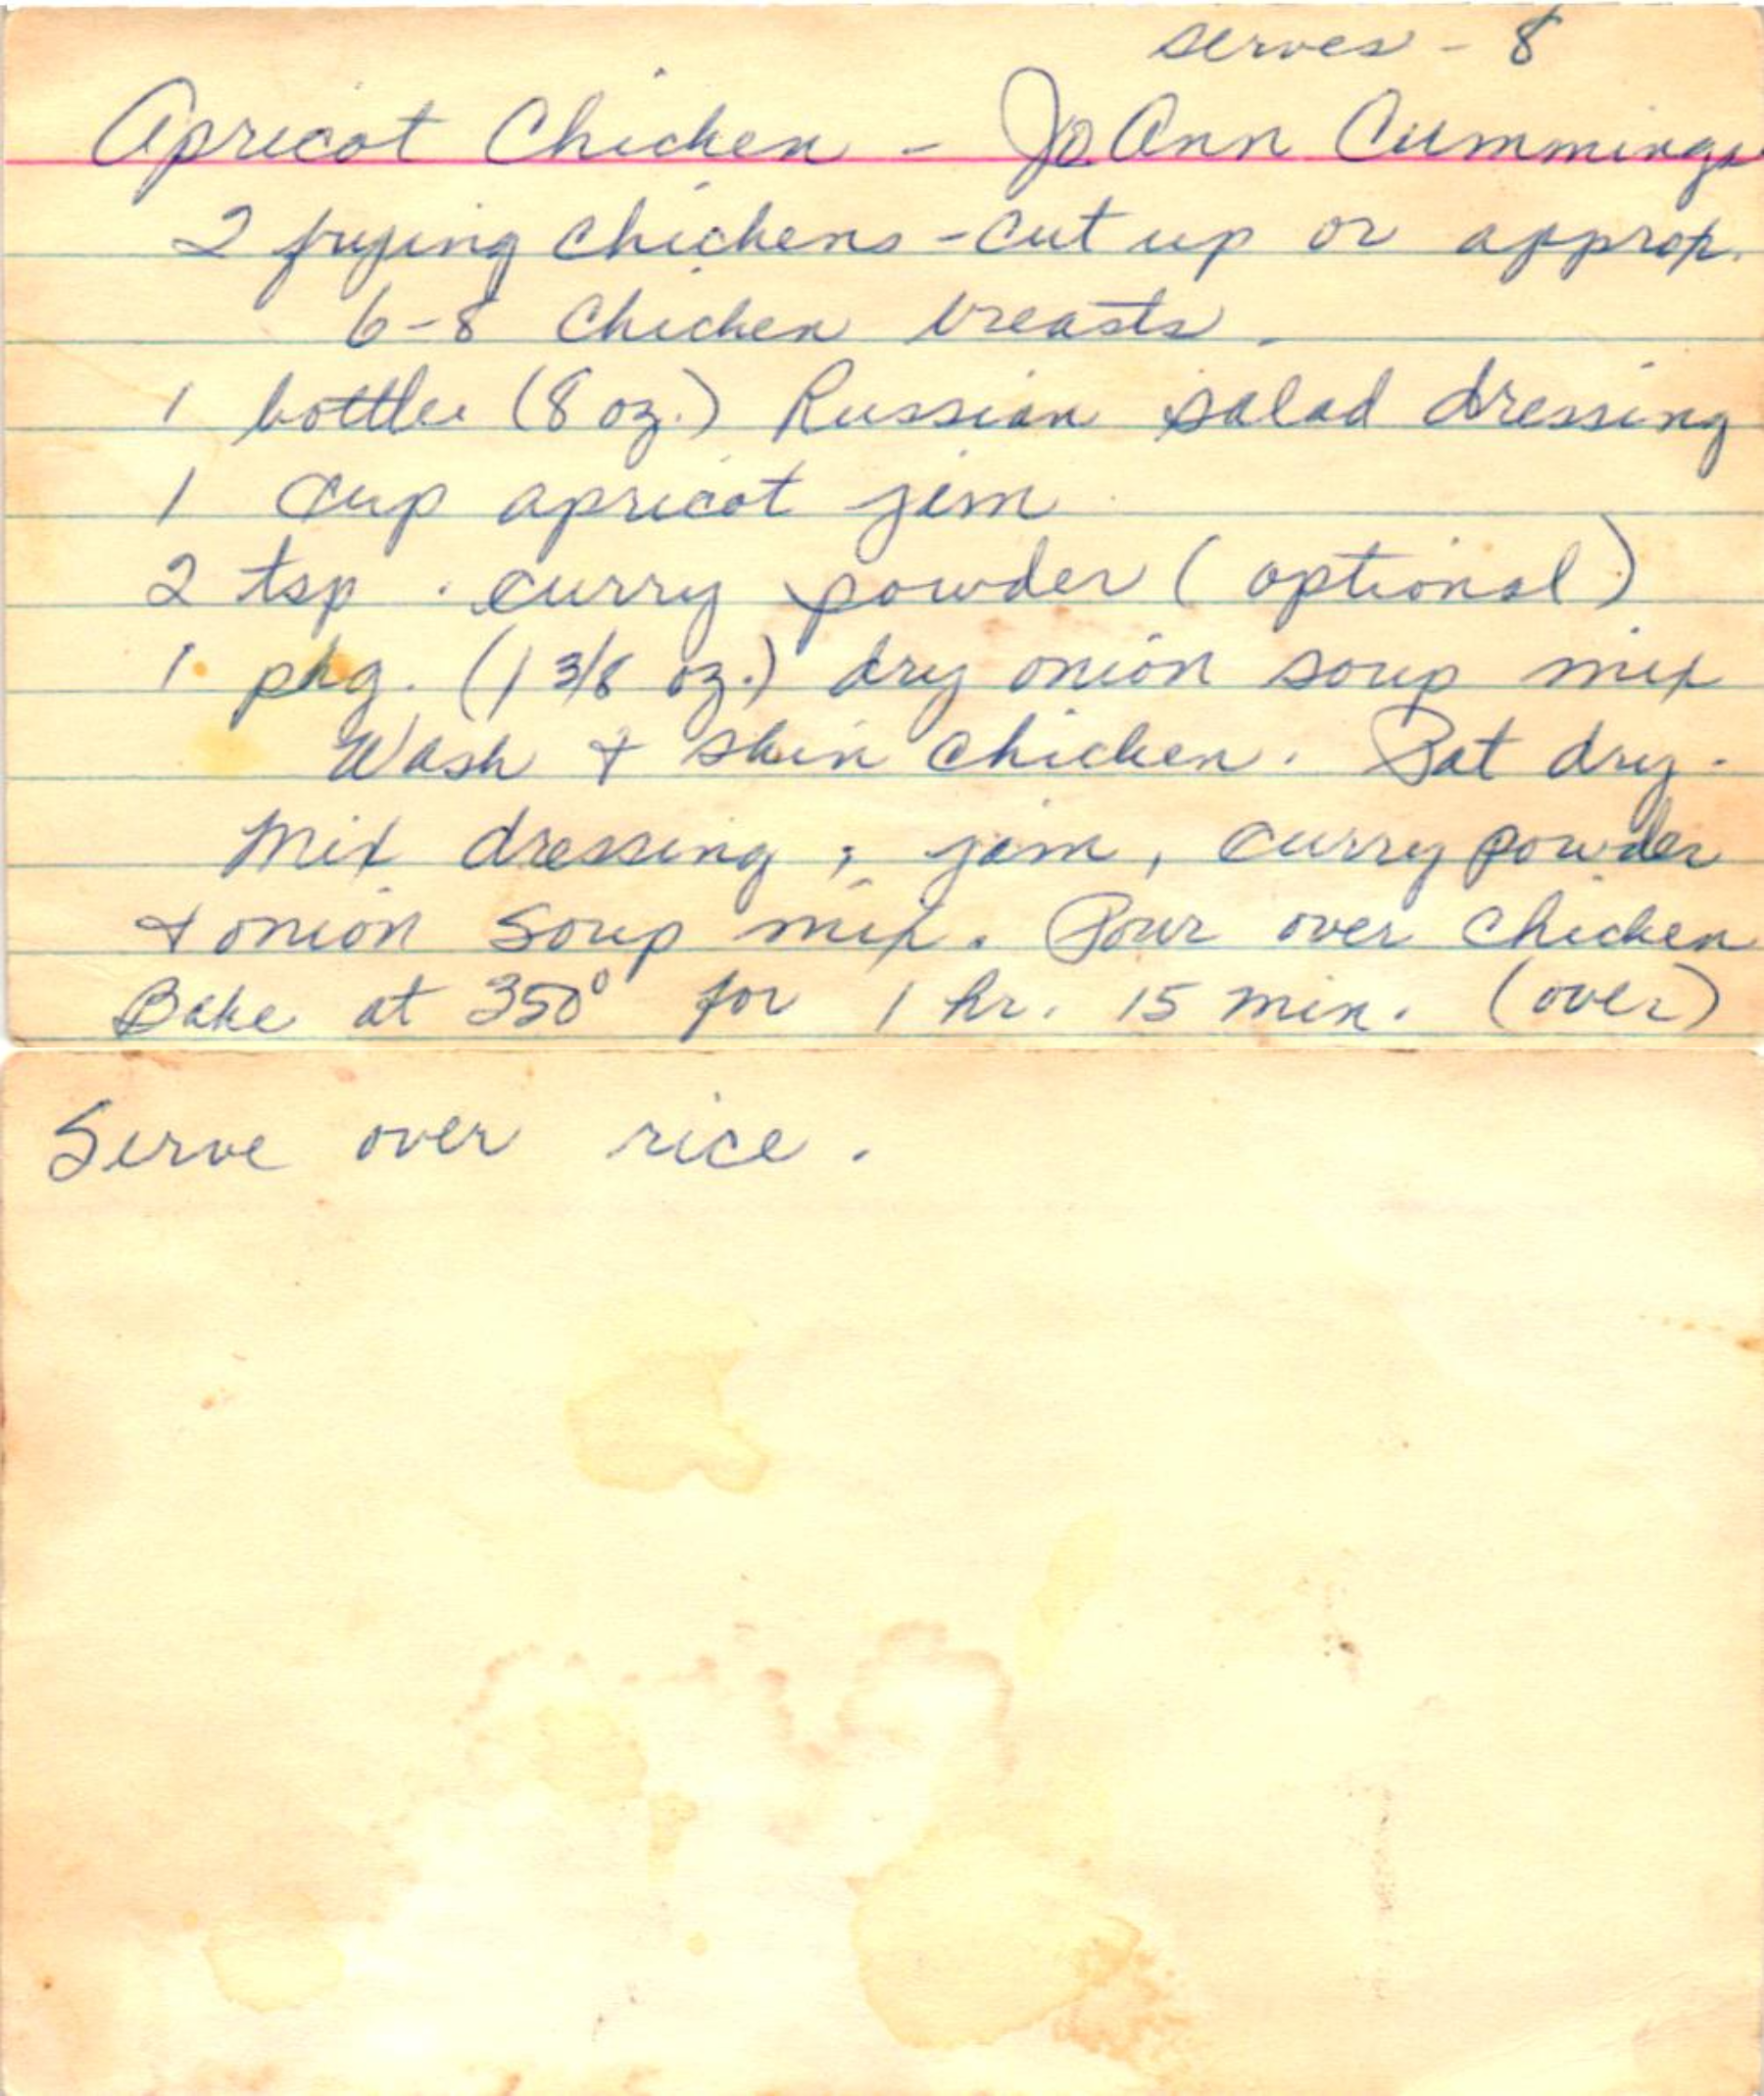 serves - 8
Apricot Chicken - JoAnn Cummings
2 frying chickens - cut up or approp.
6-8 chicken breasts.
1 bottle (8 oz.) Russian salad dressing
1 cup apricot jam
2 tsp. curry powder (optional)
1 pkg. (1 3/8 oz.) dry onion soup mix
Wash + skin chicken. Pat dry.
Mix dressing, jam, curry powder
+ onion soup mix. Pour over chicken
Bake at 350° for 1 hr. 15 min. (over)
Serve over rice.